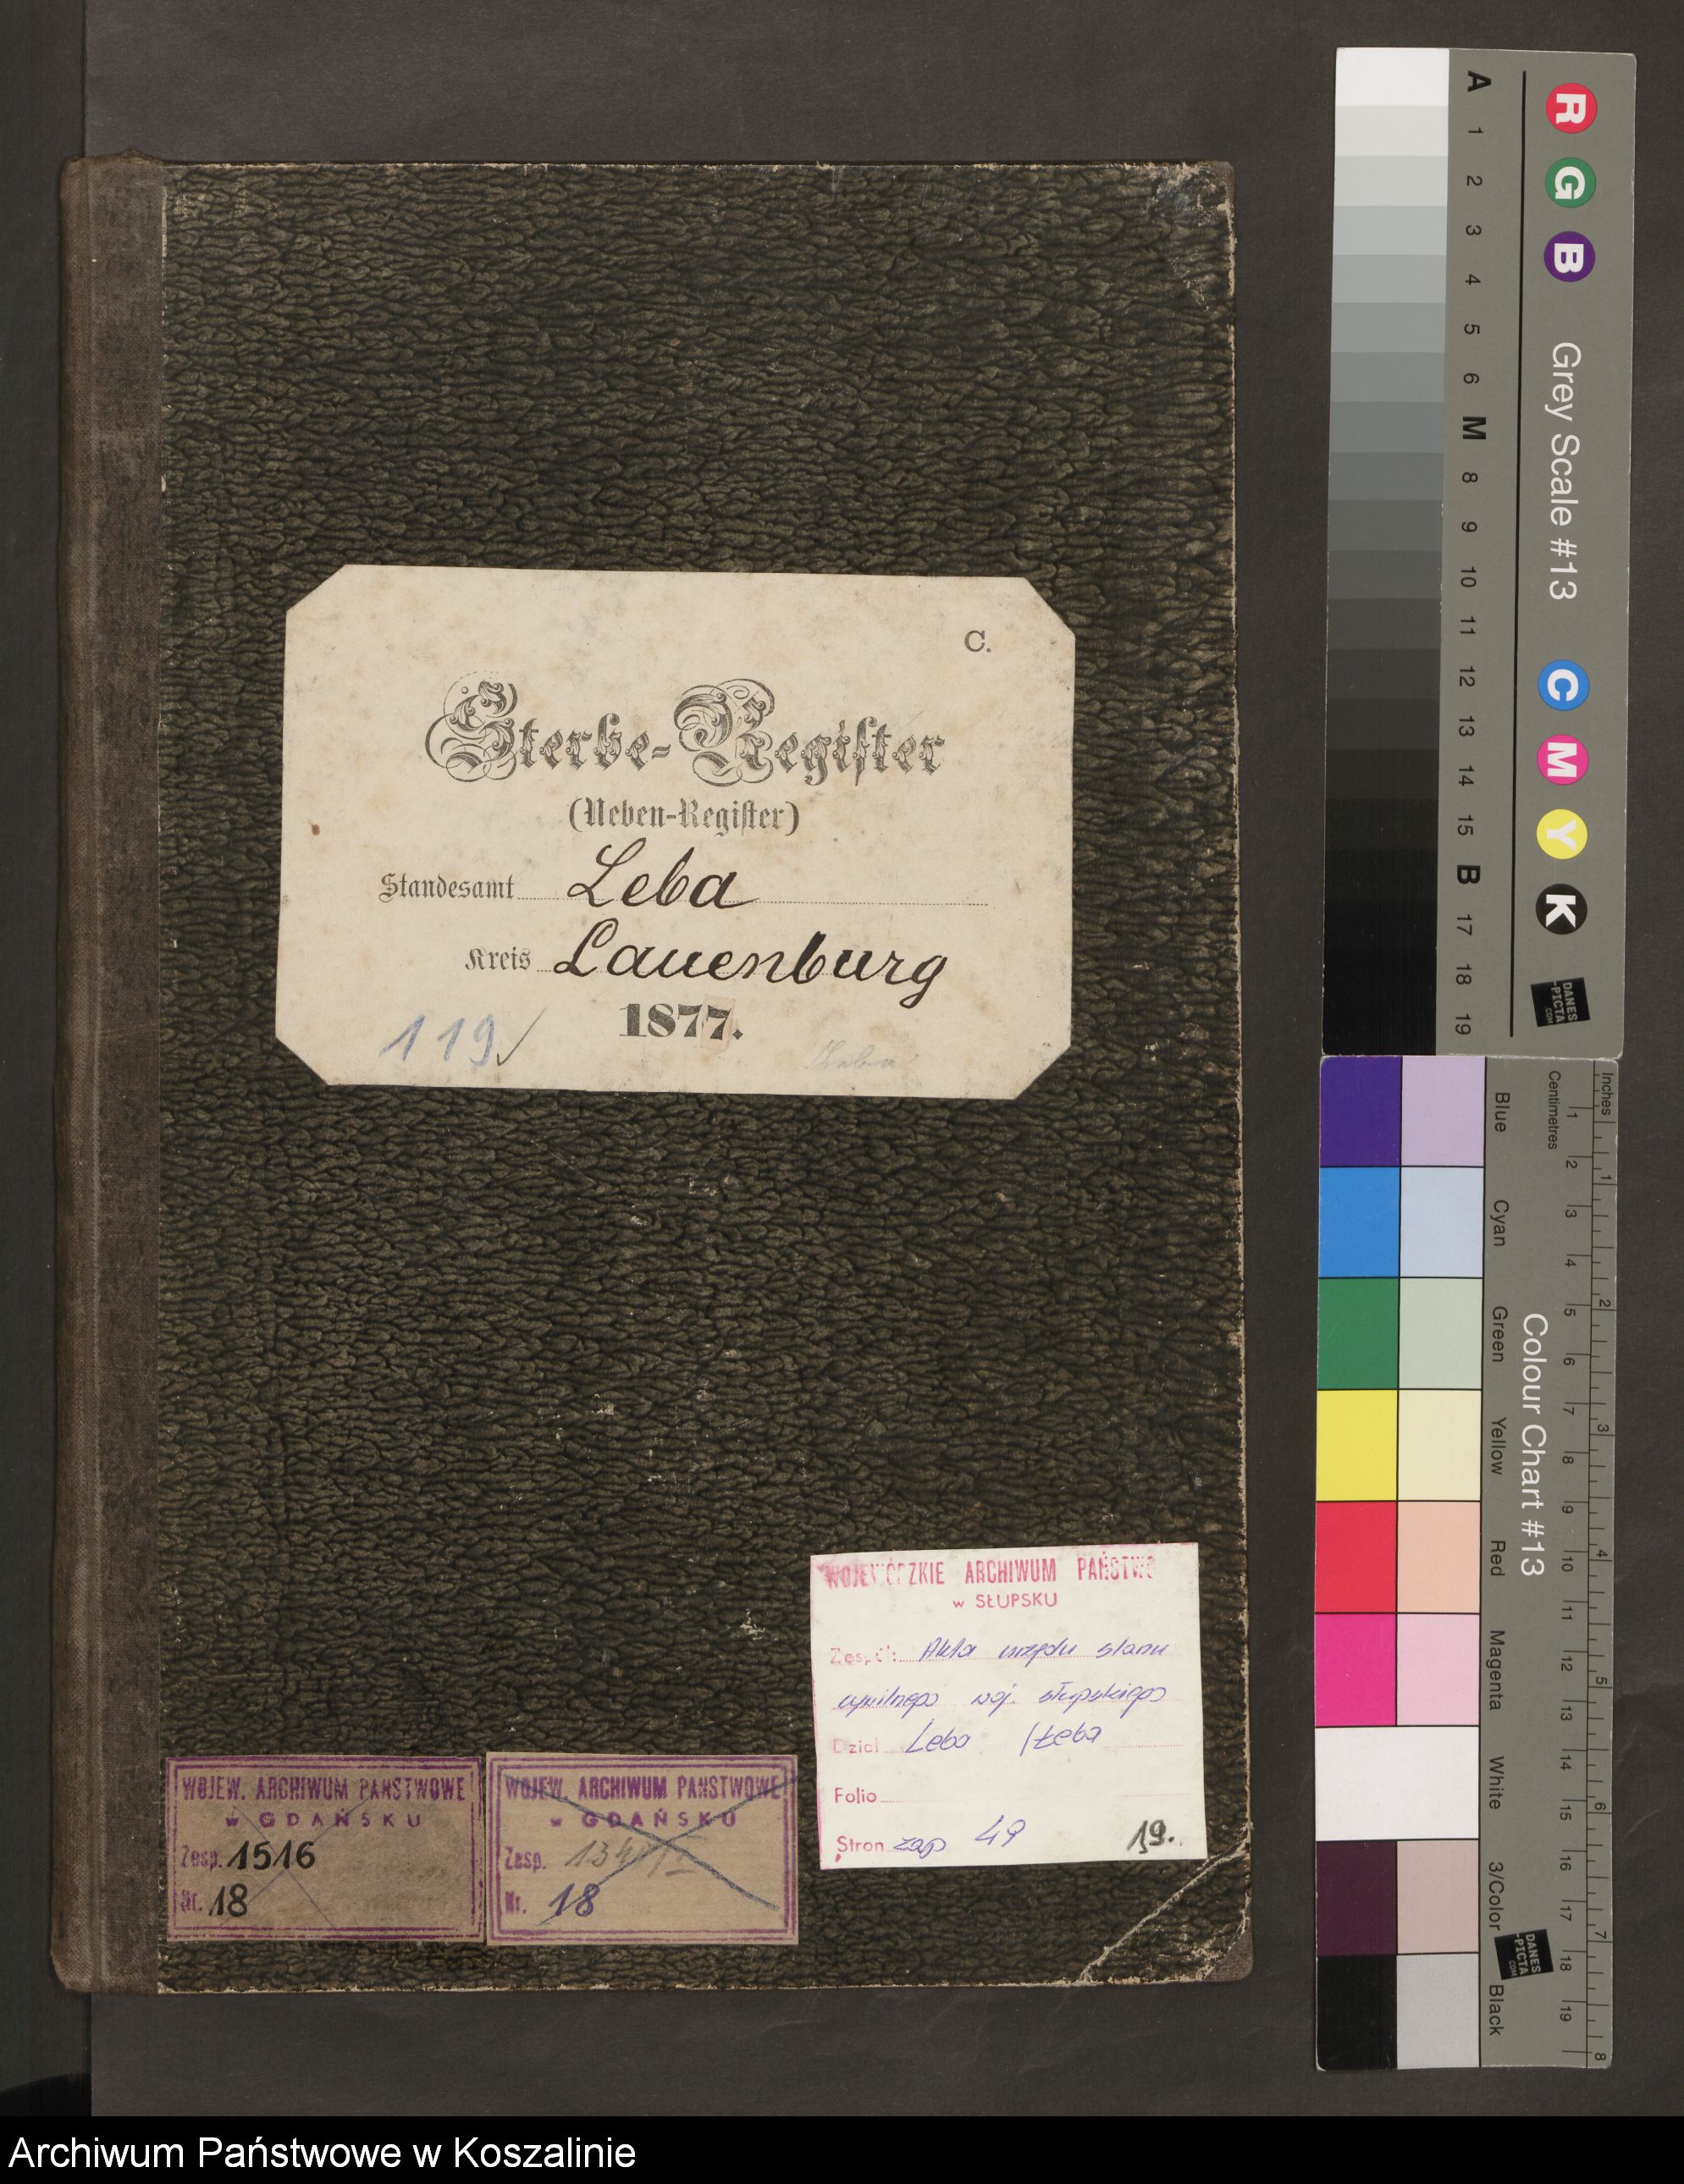 C.
Sterbe-Register
(Neben-Register)
Standesamt Leba
Kreis Lauenburg
1877.
119✓
WOJEWÓDZKIE ARCHIWUM PAŃSTWO
w SŁUPSKU
Zespół: Akta urzędu stanu
cywilnego woj. słupskiego
Dział Leba /Łeba
Folio
Stron zap 49 19.
WOJEW. ARCHIWUM PAŃSTWOWE
w GDAŃSKU
Zesp. 1516
Nr. 18
WOJEW. ARCHIWUM PAŃSTWOWE
w GDAŃSKU
Zesp.
Nr. 18
R G B
Grey Scale #13
C M Y K
A 1 2 3 4 5 6 M 8 9 10 11 12 13 14 15 B 17 18 19
DANES
-PICTA
.COM
Inches 1 2 3 4 5 6 7 8
Centimetres 1 2 3 4 5 6 7 8 9 10 11 12 13 14 15 16 17 18 19
Colour Chart #13
Blue Cyan Green Yellow Red Magenta White 3/Color Black
DANES
-PICTA
.COM
Archiwum Państwowe w Koszalinie